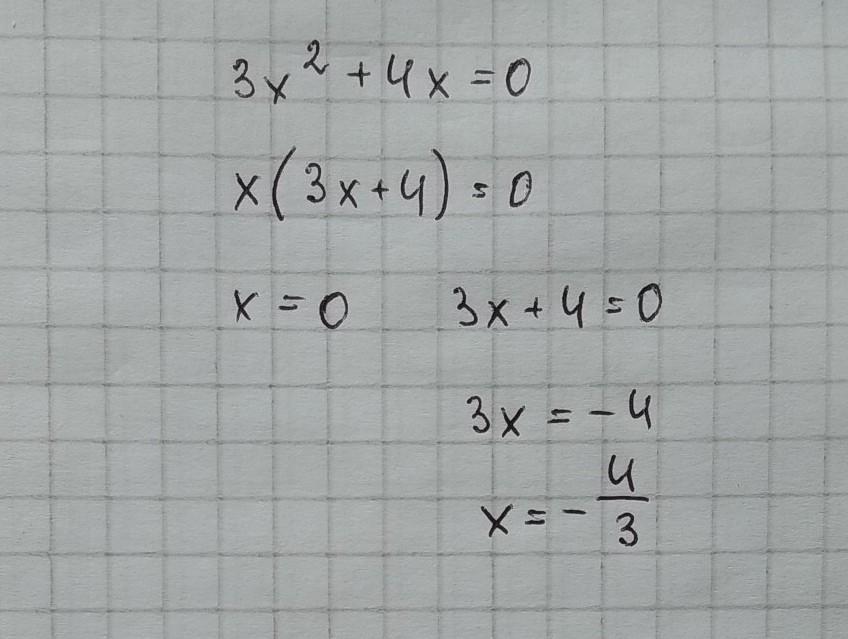 3x² + 4x = 0
x(3x+4) = 0
x = 0 3x + 4 = 0
3x = -4
x = - 4/3